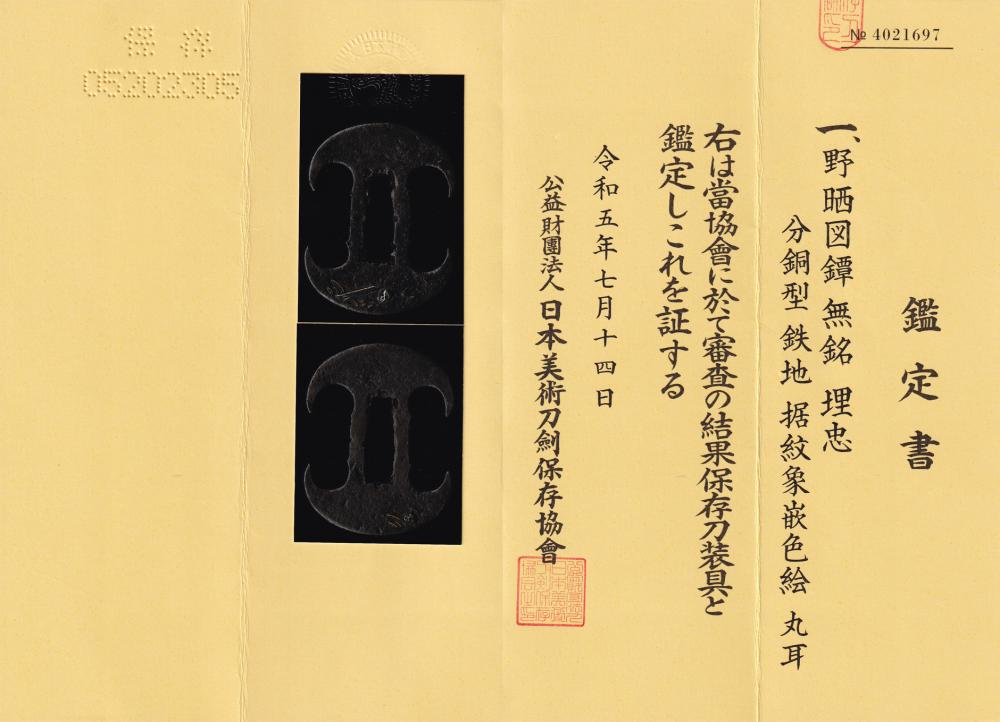 № 4021697
鑑定書
一、野晒図鐔 無銘 埋忠
分銅型 鉄地 据紋象嵌色絵 丸耳
右は當協會に於て審査の結果保存刀装具と
鑑定しこれを証する
令和五年七月十四日
公益財團法人 日本美術刀劍保存協會
保存
05202305